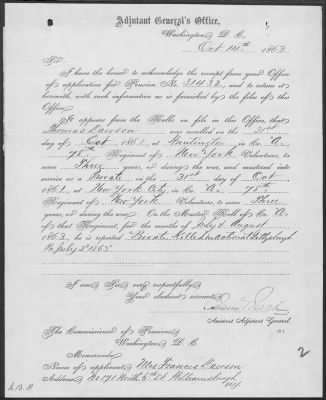 Adjutant General's Office,
Washington, D. C.
Oct 14th 1863
Sir:
I have the honor to acknowledge the receipt from your Office
of application for Pension No. 31432, and to return it
herewith, with such information as is furnished by the files of this
Office.
It appears from the Rolls on file in this Office, that
Thomas Lawson was enrolled on the 31st
day of Oct 1861, at in Co. A
78th Regiment of New York Volunteers, to
serve Three years, or during the war, and mustered into
service as a Private on the 31st day of Oct
1861, at New York City, in Co. A 78th
Regiment of New York Volunteers, to serve Three
years, or during the war. On the Muster Roll of Co. A
of that Regiment, for the months of July & August
1863, he is reported "Private Killed in action at Gettysburgh
Pa July 2d 1863"
I am, Sir, very respectfully,
Your obedient servant,
Assistant Adjutant General.
The Commissioner of Pensions
Washington, D. C.
Memoranda:
Name of applicant, Mrs Francis Lawson
Address, No 171 North 6th St. Williamsburgh
NY
2